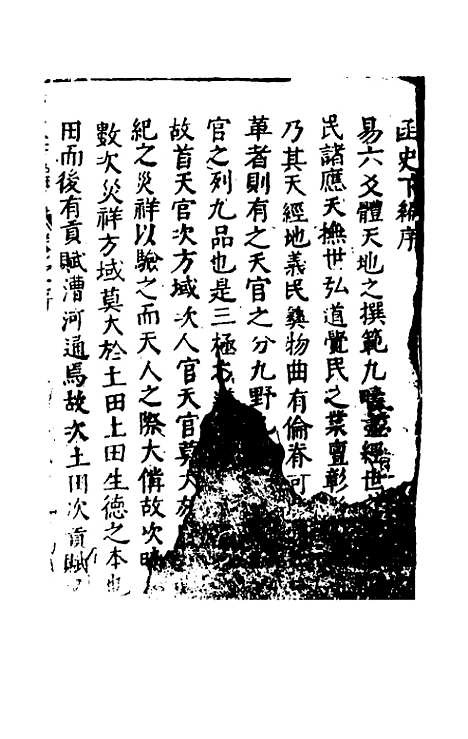 函史下編序
易六爻體天地之撰範九疇盡經世
民諸應天撫世弘道覺民之業亶彰
乃其天經地義民彝物曲有倫脊可
革者則有之天官之分九野
官之列九品也是三極
故首天官次方域次人官天官莫大於
紀之災祥以驗之而天人之際大備故次時
數次災祥方域莫大於土田土田生德之本也
田而後有貢賦漕河通焉故次土田次貢賦